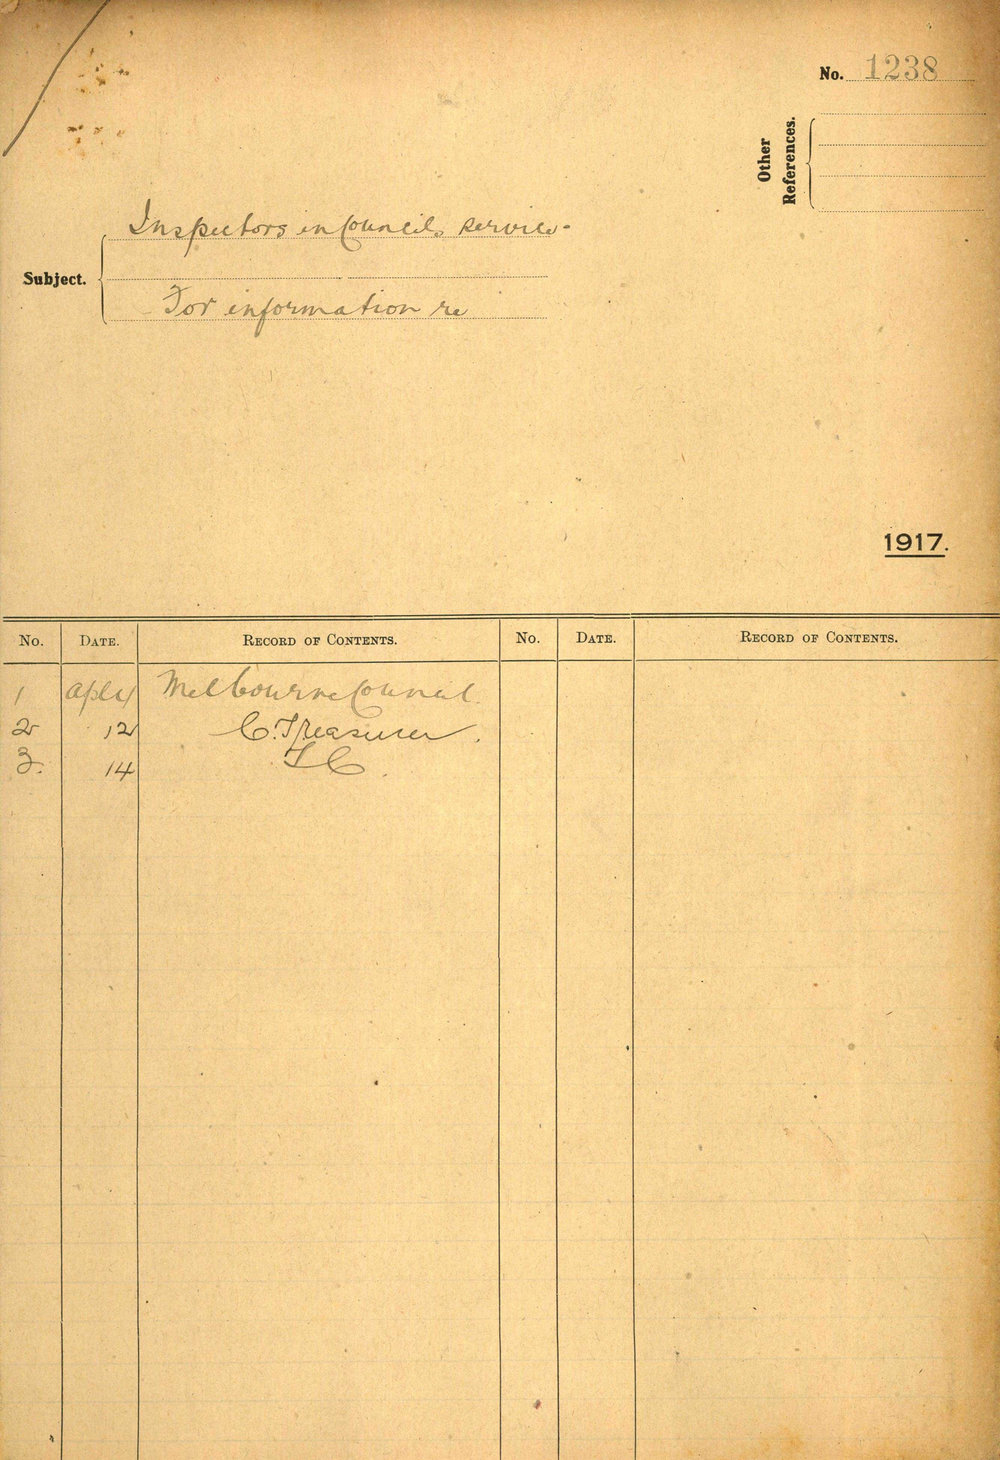 No. 1238
Other
References.
Inspectors in Council's service.
Subject.
For information re
1917.
No. DATE. RECORD OF CONTENTS. No. DATE. RECORD OF CONTENTS.
1 Melbourne Council.
2 12 C. Treasurer.
3. 14 TC.